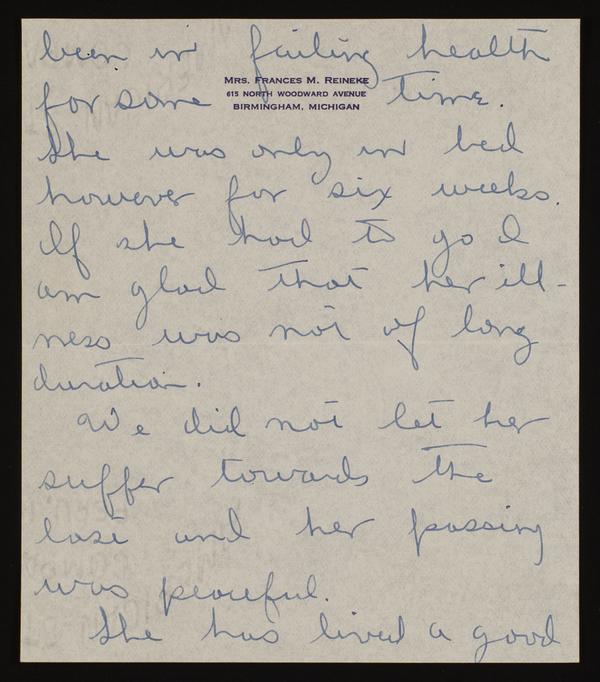 been in failing health
MRS. FRANCES M. REINEKE
615 NORTH WOODWARD AVENUE
BIRMINGHAM, MICHIGAN
for some time.
She was only in bed
however for six weeks.
If she had to go I
am glad that her ill-
ness was not of long
duration.
We did not let her
suffer towards the
last and her passing
was peaceful.
She has lived a good